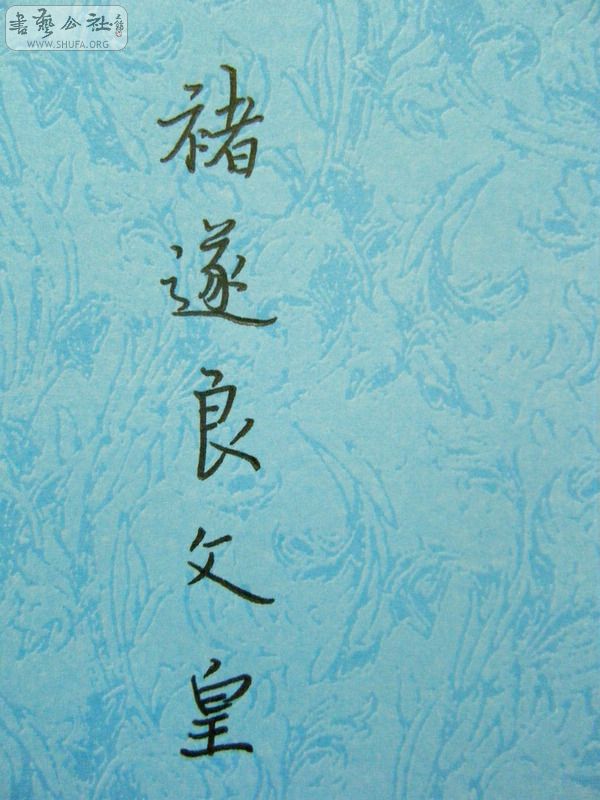 書藝公社
WWW.SHUFA.ORG
褚遂良文皇